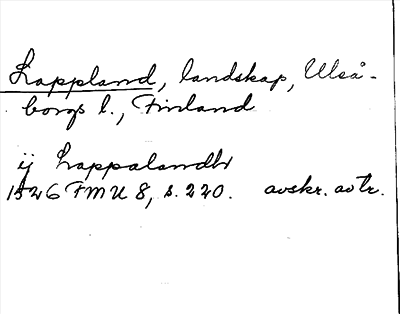 Lappland, landskap, Uleå-
borgs l., Finland
ij Lappalandh
1526 FMU 8, s. 220. avskr. av tr.